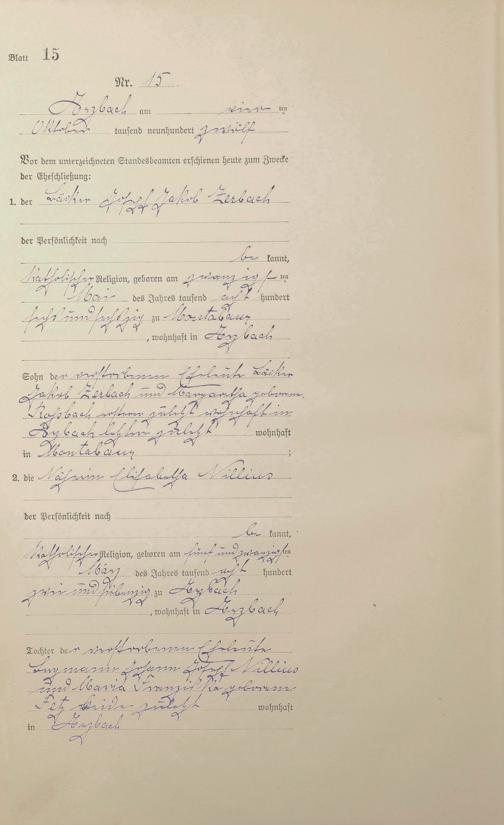 Blatt 15
Nr. 15
Arzbach am vier ten
Oktober tausend neunhundert zwölf
Vor dem unterzeichneten Standesbeamten erschienen heute zum Zwecke
der Eheschließung:
1. der Bäcker Josef Jakob Zerbach
der Persönlichkeit nach
be kannt,
katholischer Religion, geboren am zwanzigsten
Mai des Jahres tausend acht hundert
sechs und sechzig zu Montabaur
, wohnhaft in Arzbach
Sohn der verstorbenen Eheleute Bäcker
Jakob Zerbach und Margaretha geborenen
Roßbach ersterer zuletzt wohnhaft in
Arzbach letztere zuletzt wohnhaft
in Montabaur ;
2. die Näherin Elisabetha Nillius
der Persönlichkeit nach
be kannt,
katholischer Religion, geboren am fünf und zwanzigsten
März des Jahres tausend acht hundert
zwei und siebenzig zu Arzbach
, wohnhaft in Arzbach
Tochter der verstorbenen Eheleute
Bergmann Johann Josef Nillius
und Maria Franziska geborenen
Fetz beide zuletzt wohnhaft
in Arzbach